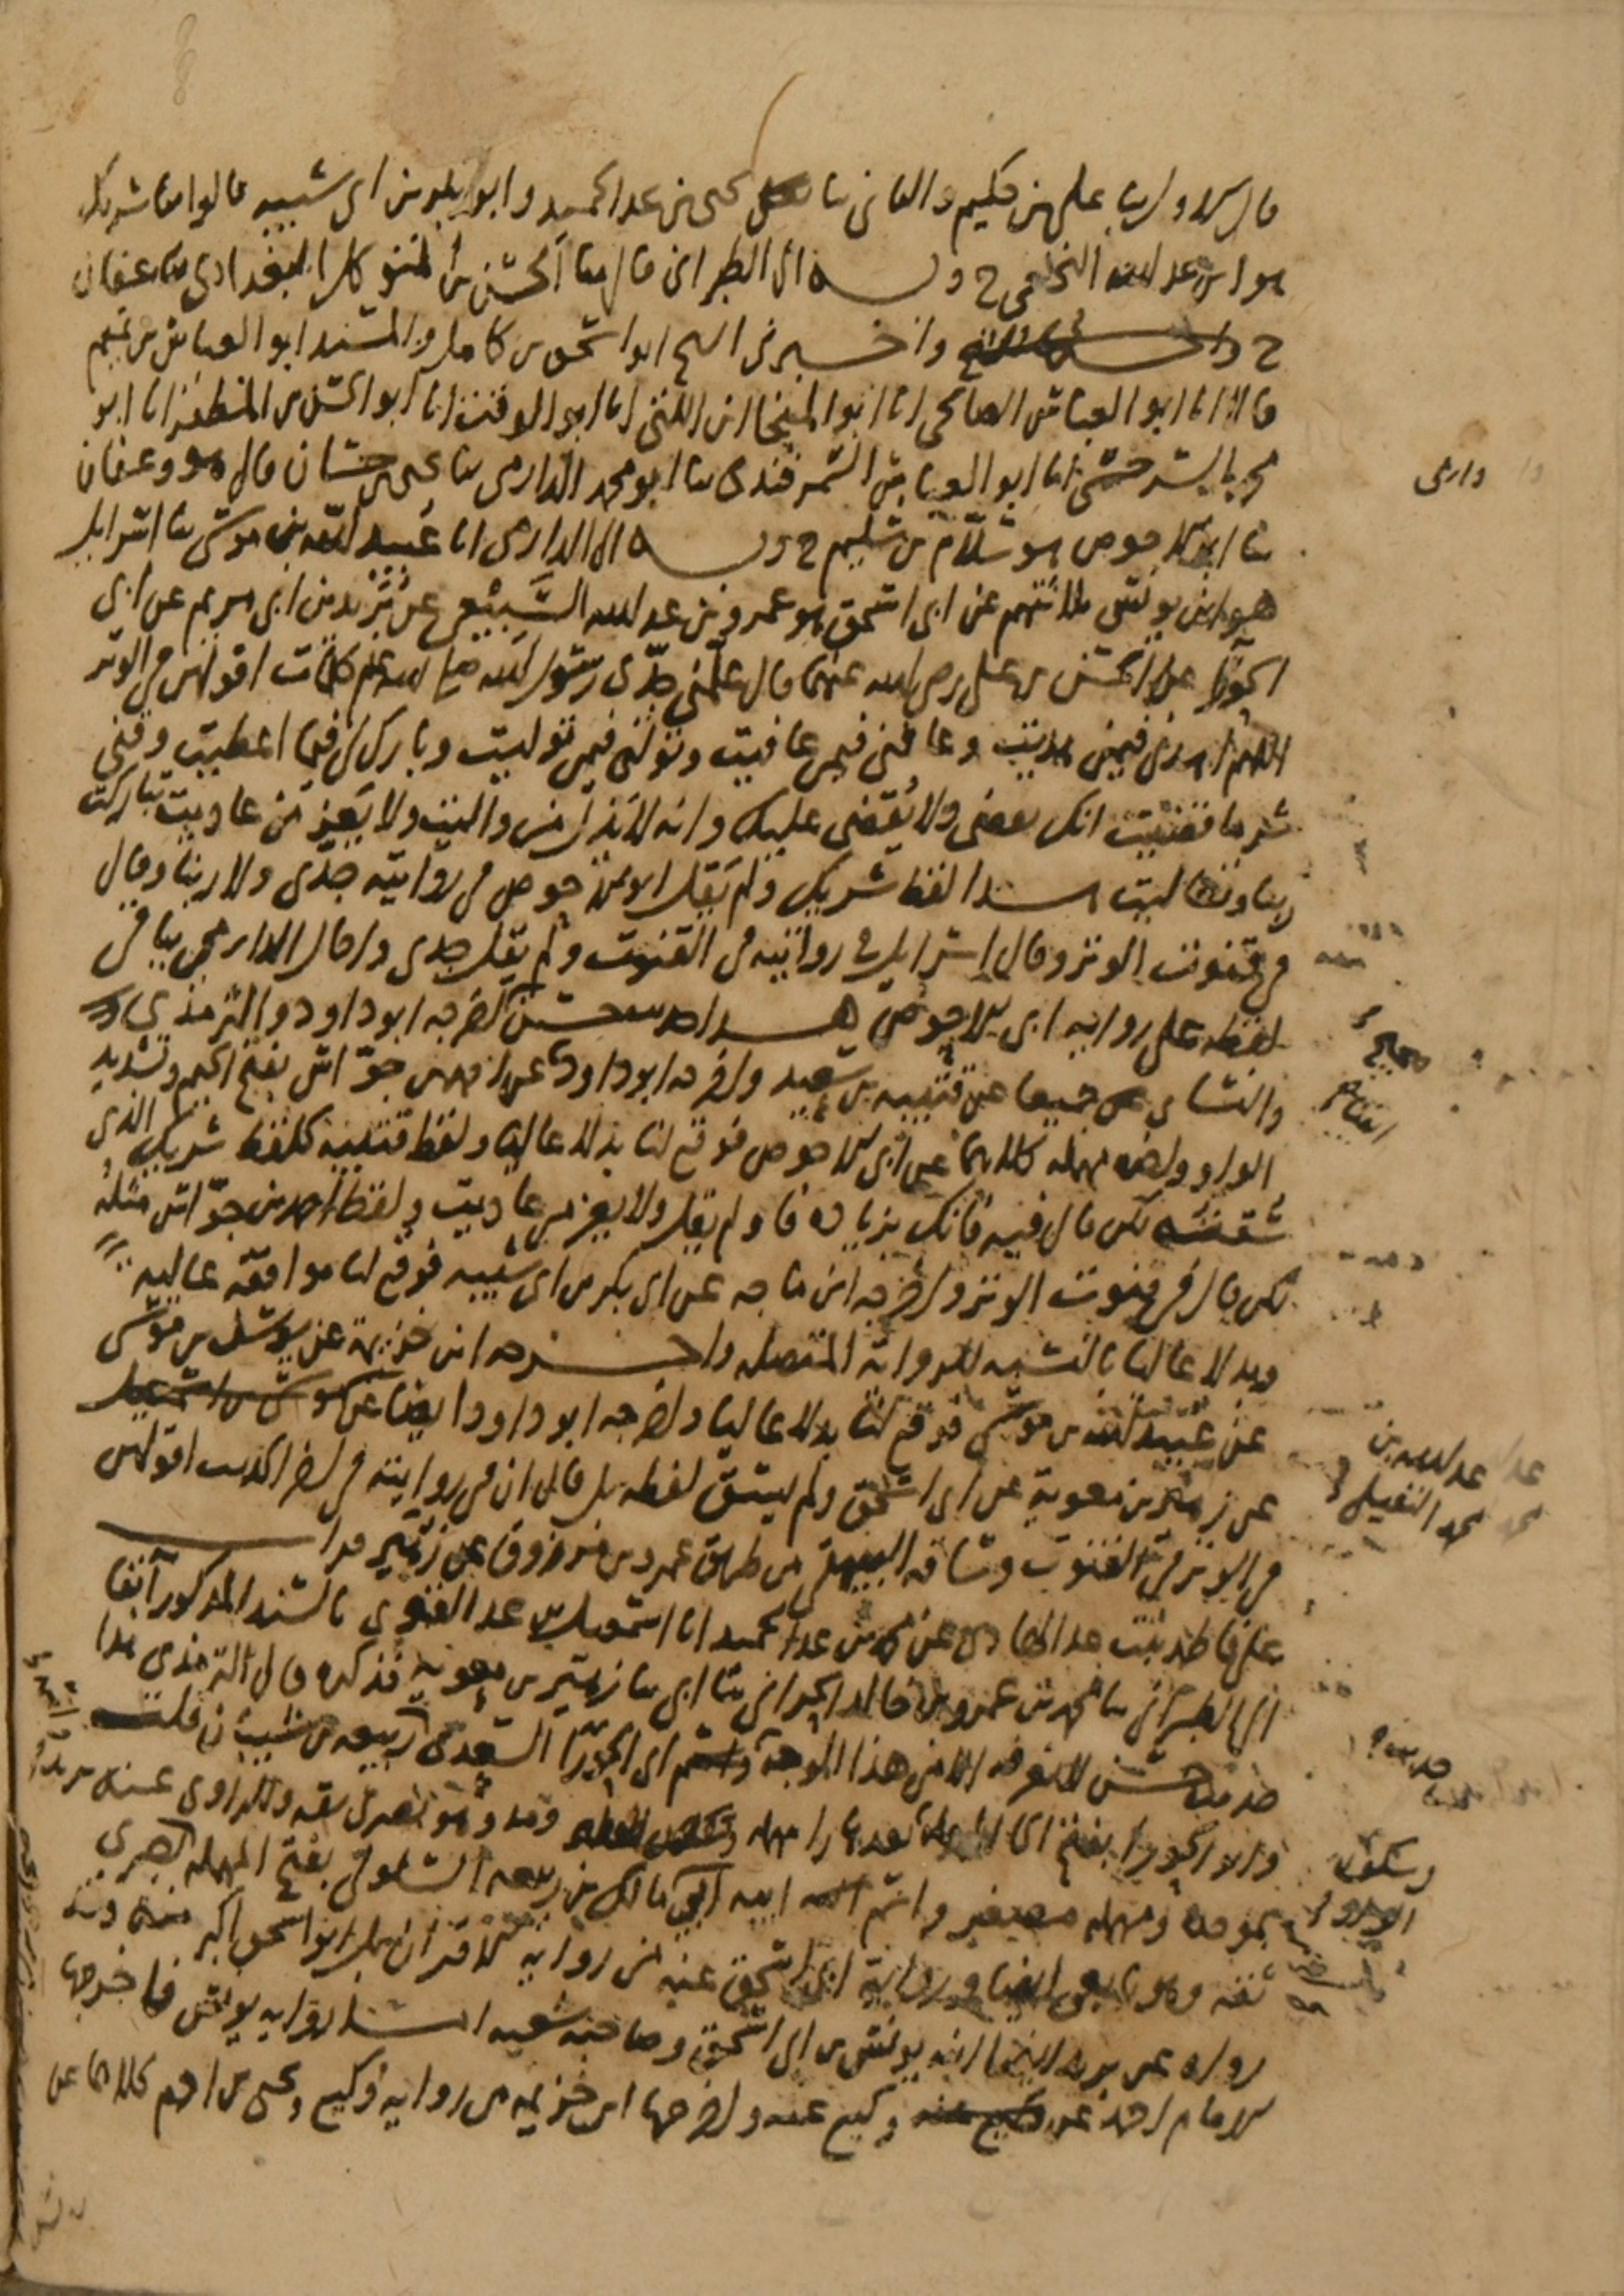 قال الاول ثنا علي بن حكيم والثاني ثنا يحيى بن عبد الحميد وابو بكر بن ابي شيبة قالوا ثنا شريك
هو ابن عبد الله النخعي ح وبه الى الطبراني قال ثنا الحسن بن المتوكل البغدادي ثنا عفان
ح واخبرني الشيخ ابو اسحق بن كامل والمسند ابو العباس بن تميم
قالا انا ابو العباس الصالحي انا ابو المنجا ابن اللتي انا ابو الوقت انا ابو الحسن بن المظفر انا ابو
محمد السرخسي انا ابو العباس السمرقندي ثنا ابو محمد الدارمي ثنا يحيى بن حسان قال هو وعفان
ثنا ابو الاحوص هو سلام بن سليم ح وبه الى الدارمي انا عبيد الله بن موسى ثنا اسرايل
هو ابن يونس ثلاثتهم عن ابي اسحق هو عمرو بن عبد الله السبيعي عن بريد بن ابي مريم عن ابي
الحوراء عن الحسن بن علي رضي الله عنهما قال علمني جدي رسول الله صلى الله عليه وسلم كلمات اقولهن في الوتر
اللهم اهدني فيمن هديت وعافني فيمن عافيت وتولني فيمن توليت وبارك لي فيما اعطيت وقني
شر ما قضيت انك تقضي ولا يقضى عليك وانه لا يذل من واليت ولا يعز من عاديت تباركت
ربنا وتعاليت هذا لفظ شريك ولم يقل ابو الاحوص في روايته جدي ولا ربنا وقال
في قنوت الوتر وقال اسرايل في روايته في القنوت ولم يقل جدي واحال الدارمي بباقي
لفظه على رواية ابي الاحوص هذا حديث حسن اخرجه ابو داود والترمذي
والنسائي جميعا عن قتيبة بن سعيد واخرجه ابو داود عن احمد بن جواس بفتح الجيم وتشديد
الواو واخره مهملة كلاهما عن ابي الاحوص فوقع لنا بدلا عاليا ولفظ قتيبة كلفظ شريك الذي
سقته لكن قال فيه فانك بزيادة فا ولم يقل ولا يعز من عاديت ولفظ احمد بن جواس مثله
لكن قال في قنوت الوتر واخرجه ابن ماجه عن ابي بكر بن ابي شيبة فوقع لنا موافقة عالية
وبدلا عاليا بالنسبة للرواية المتصلة واخرجه ابن خزيمة عن يوسف بن موسى
عن عبيد الله بن موسى فوقع لنا بدلا عاليا واخرجه ابو داود ايضا عن
عن زهير بن معوية عن ابي اسحق ولم يسق لفظه بل قال ان في روايته في اخر الحديث اقولهن
في الوتر في القنوت وساقه البيهقي من طريق عمرو بن مرزوق عن زهير قرأت
على فاطمة بنت عبد الهادي عن محمد بن عبد الحميد انا اسمعيل بن عبد القوي بالسند المذكور آنفا
الى الطبراني ثنا محمد بن عمرو بن خالد الحراني ثنا ابي ثنا زهير بن معوية فذكره قال الترمذي هذا
حديث حسن لا نعرفه الا من هذا الوجه واسم ابي الحوراء السعدي ربيعة بن شيبان قلت
وابو الحوراء بفتح الحاء المهملة بعدها را مهملة ومد وهو بصري ثقة والراوي عنه بريد
بموحدة ومهملة مصغر واسم ابيه ابي مالك بن ربيعة السلولي بفتح المهملة بصري
ثقة وهو تابعي ايضا ورواية ابي اسحق عنه من رواية الاقران بل ابو اسحق اكبر منه وقد
رواه عن بريد ايضا ابنه يونس بن ابي اسحق وصاحبه شعبة اما رواية يونس فاخرجها
الامام احمد عن وكيع عنه واخرجها ابن خزيمة من رواية وكيع ويحيى بن ادم كلاهما عن
دارمي
عبد الله بن
محمد النفيلي
وسكون